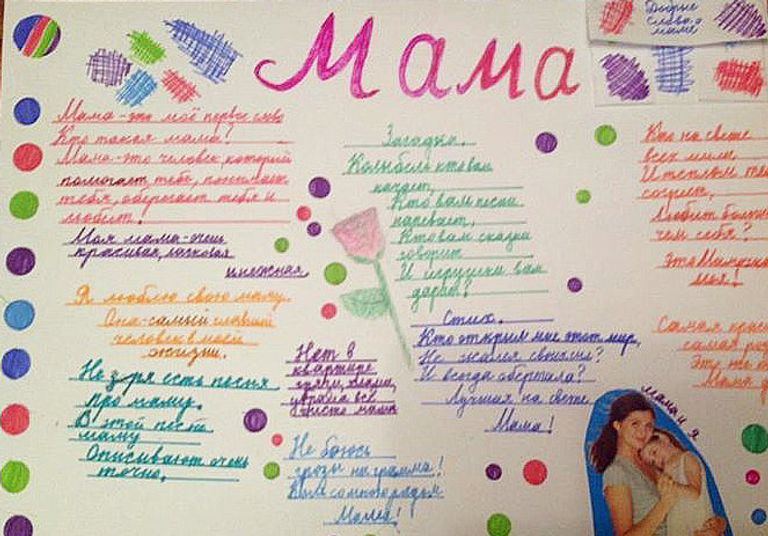 Мама
Добрые
слова о
маме
Мама-это моё первое слово
Кто такая мама?
Мама-это человек, который
помогает тебе, понимает
тебя, оберегает тебя и
любит.
Моя мама-очень
красивая, ласковая
и нежная.
Я люблю свою маму.
Она-самый главный
человек в моей
жизни.
Не зря есть песня
про маму.
В этой песне
маму
Описывают очень
точно.
Нет в
квартире
грязи,
убрала всё
чисто мама
Не боюсь
грозы ни грамма!
Мама!
Загадка.
Колыбель кто вам
качает,
Кто вам песни
напевает,
Кто вам сказки
говорит
И игрушки вам
дарит?
Стих.
Кто открыл мне этот мир,
Не жалея своих сил?
И всегда оберегала?
Лучшая на свете
Мама!
Кто на свете
всех милей
И теплом
согреет,
Любит больше
чем себя?
Это Мамочка
моя!
Самая
самая
Это
Мама
мама и я